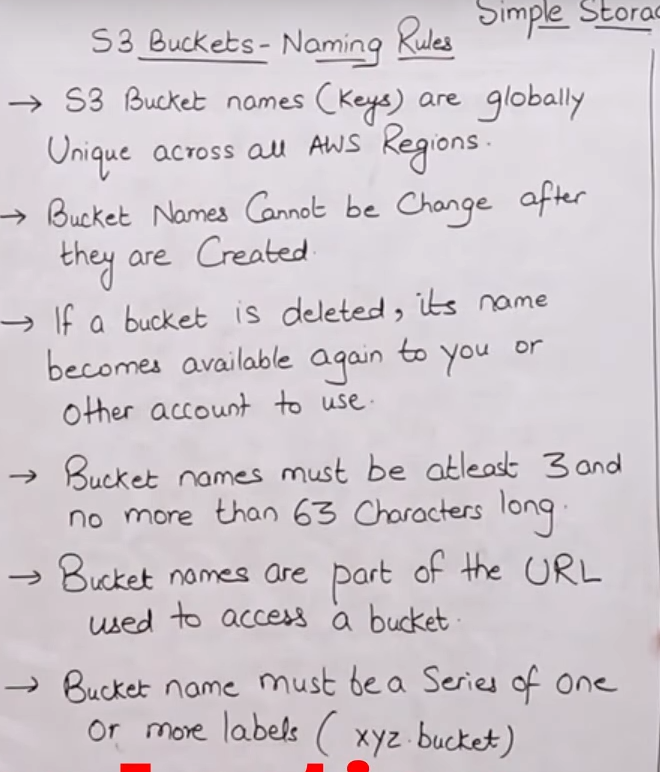 Simple Storag
S3 Buckets - Naming Rules
→ S3 Bucket names (Keys) are globally
Unique across all AWS Regions.
→ Bucket Names Cannot be Change after
they are Created.
→ If a bucket is deleted, its name
becomes available again to you or
Other account to use.
→ Bucket names must be atleast 3 and
no more than 63 Characters long.
→ Bucket names are part of the URL
used to access a bucket.
→ Bucket name must be a Series of one
Or more labels ( xyz.bucket)